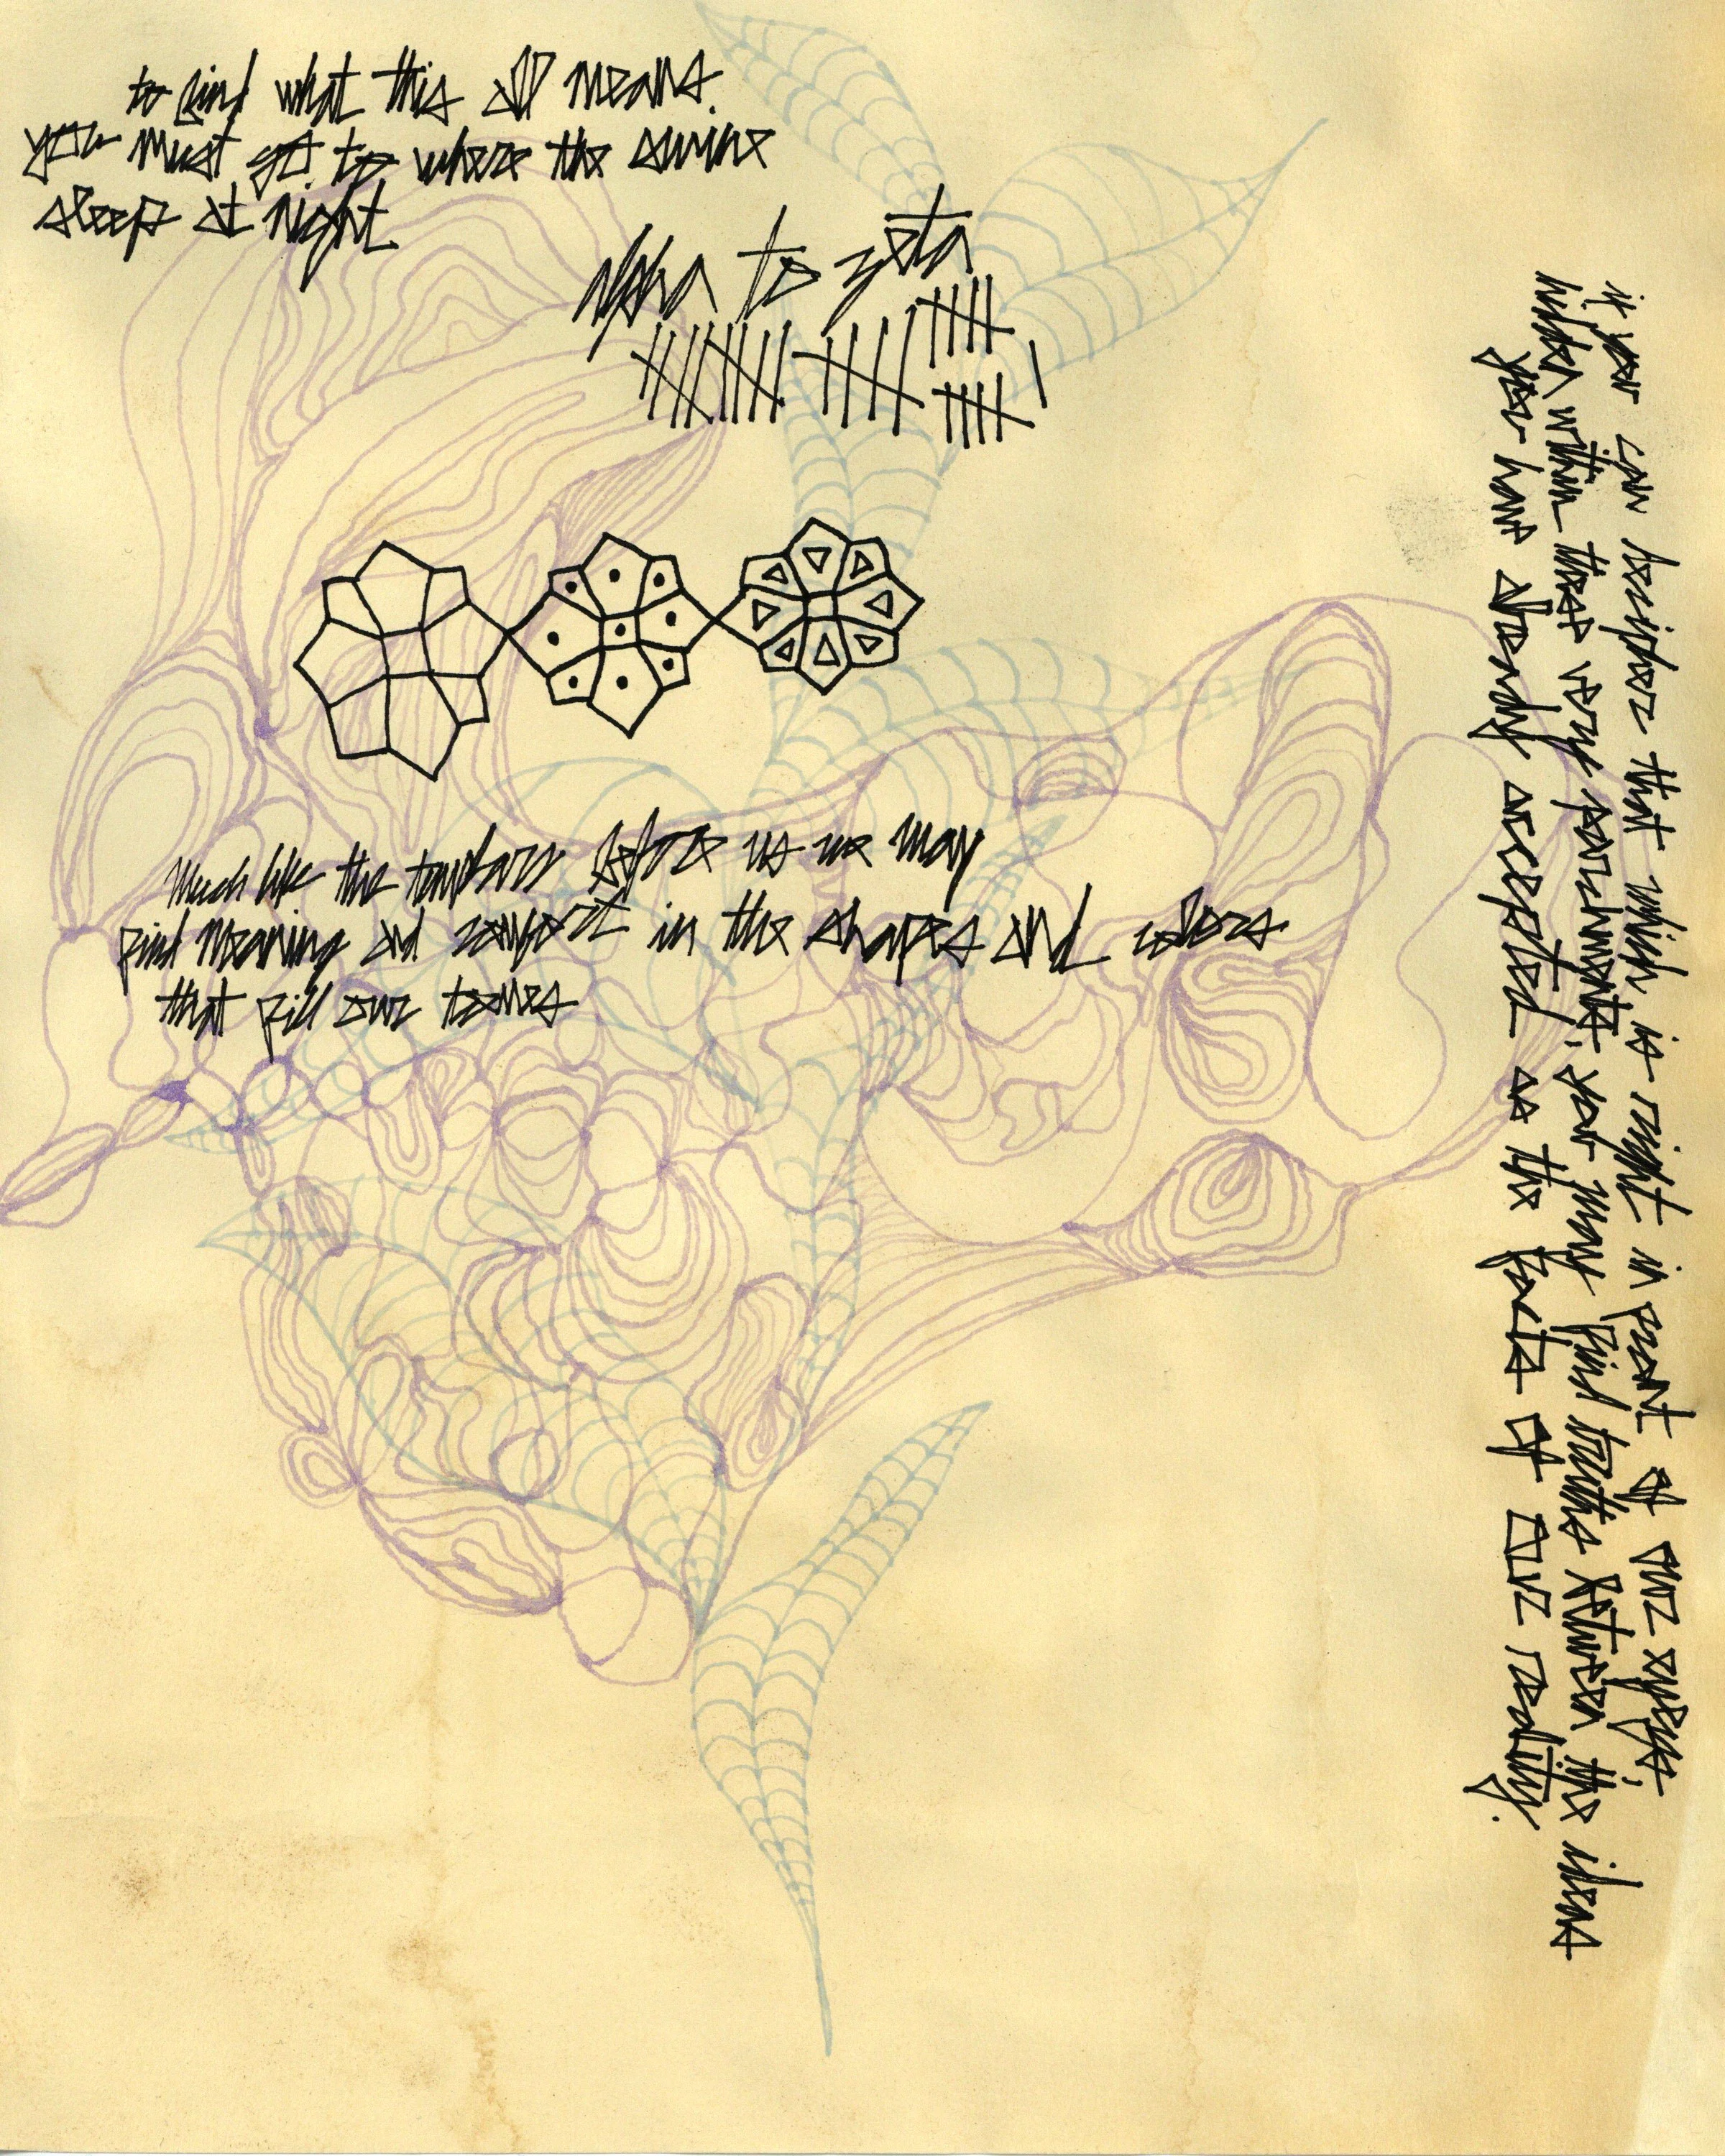 to find what this all means.
you must go to where the swine
sleep at night
alpha to zeta
Much like the templars before us we may
find meaning and comfort in the shapes and colors
that fill our tomes
if you can decipher that which is right in front of our eyes,
hidden within these very parchments, you may find truths between the ideas
you have already accepted as the facts of our reality.